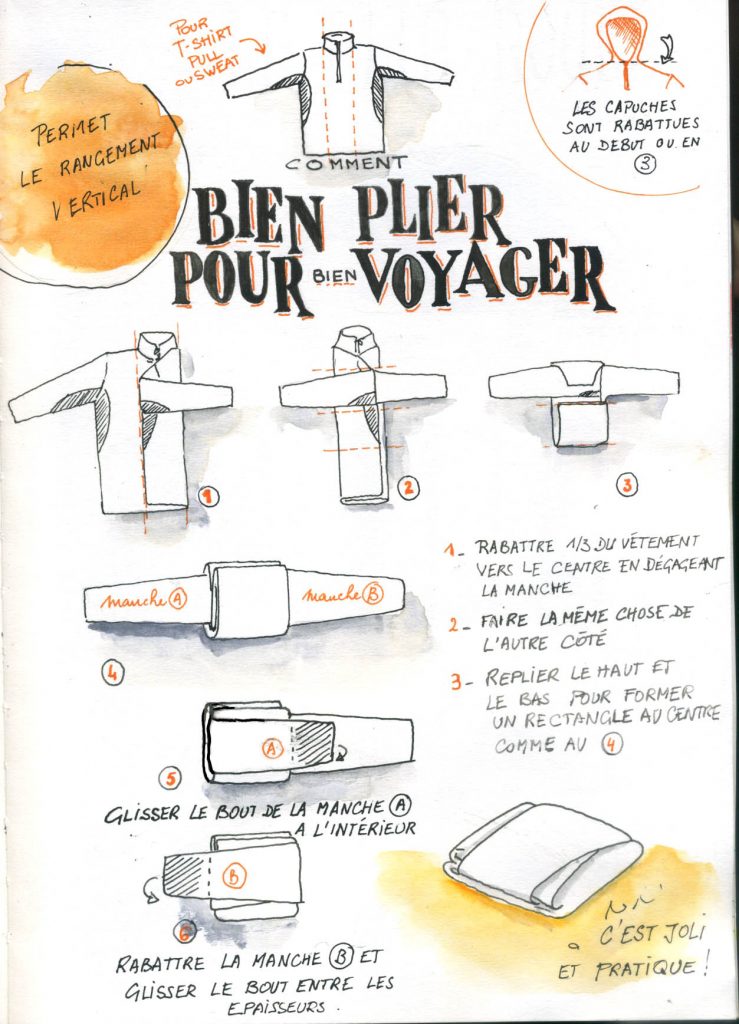 POUR
T-SHIRT
PULL
OU SWEAT
PERMET
LE RANGEMENT
VERTICAL
LES CAPUCHES
SONT RABATTUES
AU DEBUT OU EN
3
COMMENT
BIEN PLIER
POUR BIEN VOYAGER
1
2
3
1- RABATTRE 1/3 DU VÊTEMENT
VERS LE CENTRE EN DÉGAGEANT
LA MANCHE
2- FAIRE LA MÊME CHOSE DE
L'AUTRE CÔTÉ
3- REPLIER LE HAUT ET
LE BAS POUR FORMER
UN RECTANGLE AU CENTRE
COMME AU 4
manche A
manche B
4
A
5
GLISSER LE BOUT DE LA MANCHE A
A L'INTÉRIEUR
B
6
RABATTRE LA MANCHE B ET
GLISSER LE BOUT ENTRE LES
EPAISSEURS.
C'EST JOLI
ET PRATIQUE !